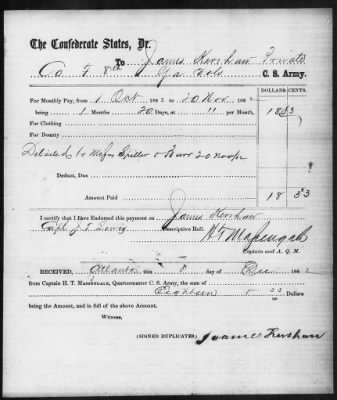 The Confederate States, Dr.
To James Kershaw Private
Co F 8th Ga Vols C. S. Army.
DOLLARS CENTS.
For Monthly Pay, from 1 Oct 1862 to 20 Nov 1862
being 1 Months 20 Days, at 11 per Month, 18 33
For Clothing
For Bounty
Detailed to Messrs Spiller & Burr 20 Nov
Deduct, Due
Amount Paid 18 33
I certify that I have Endorsed this payment on James Kershaw
Descriptive Roll.
H T Massengale
Captain and A. Q. M.
RECEIVED, Atlanta this 8 day of Dec 1862
from Captain H. T. MASSENGALE, Quartermaster C. S. Army, the sum of
Eighteen 33/100 Dollars
being the Amount, and in full of the above Account.
Witness,
(SIGNED DUPLICATES) James Kershaw